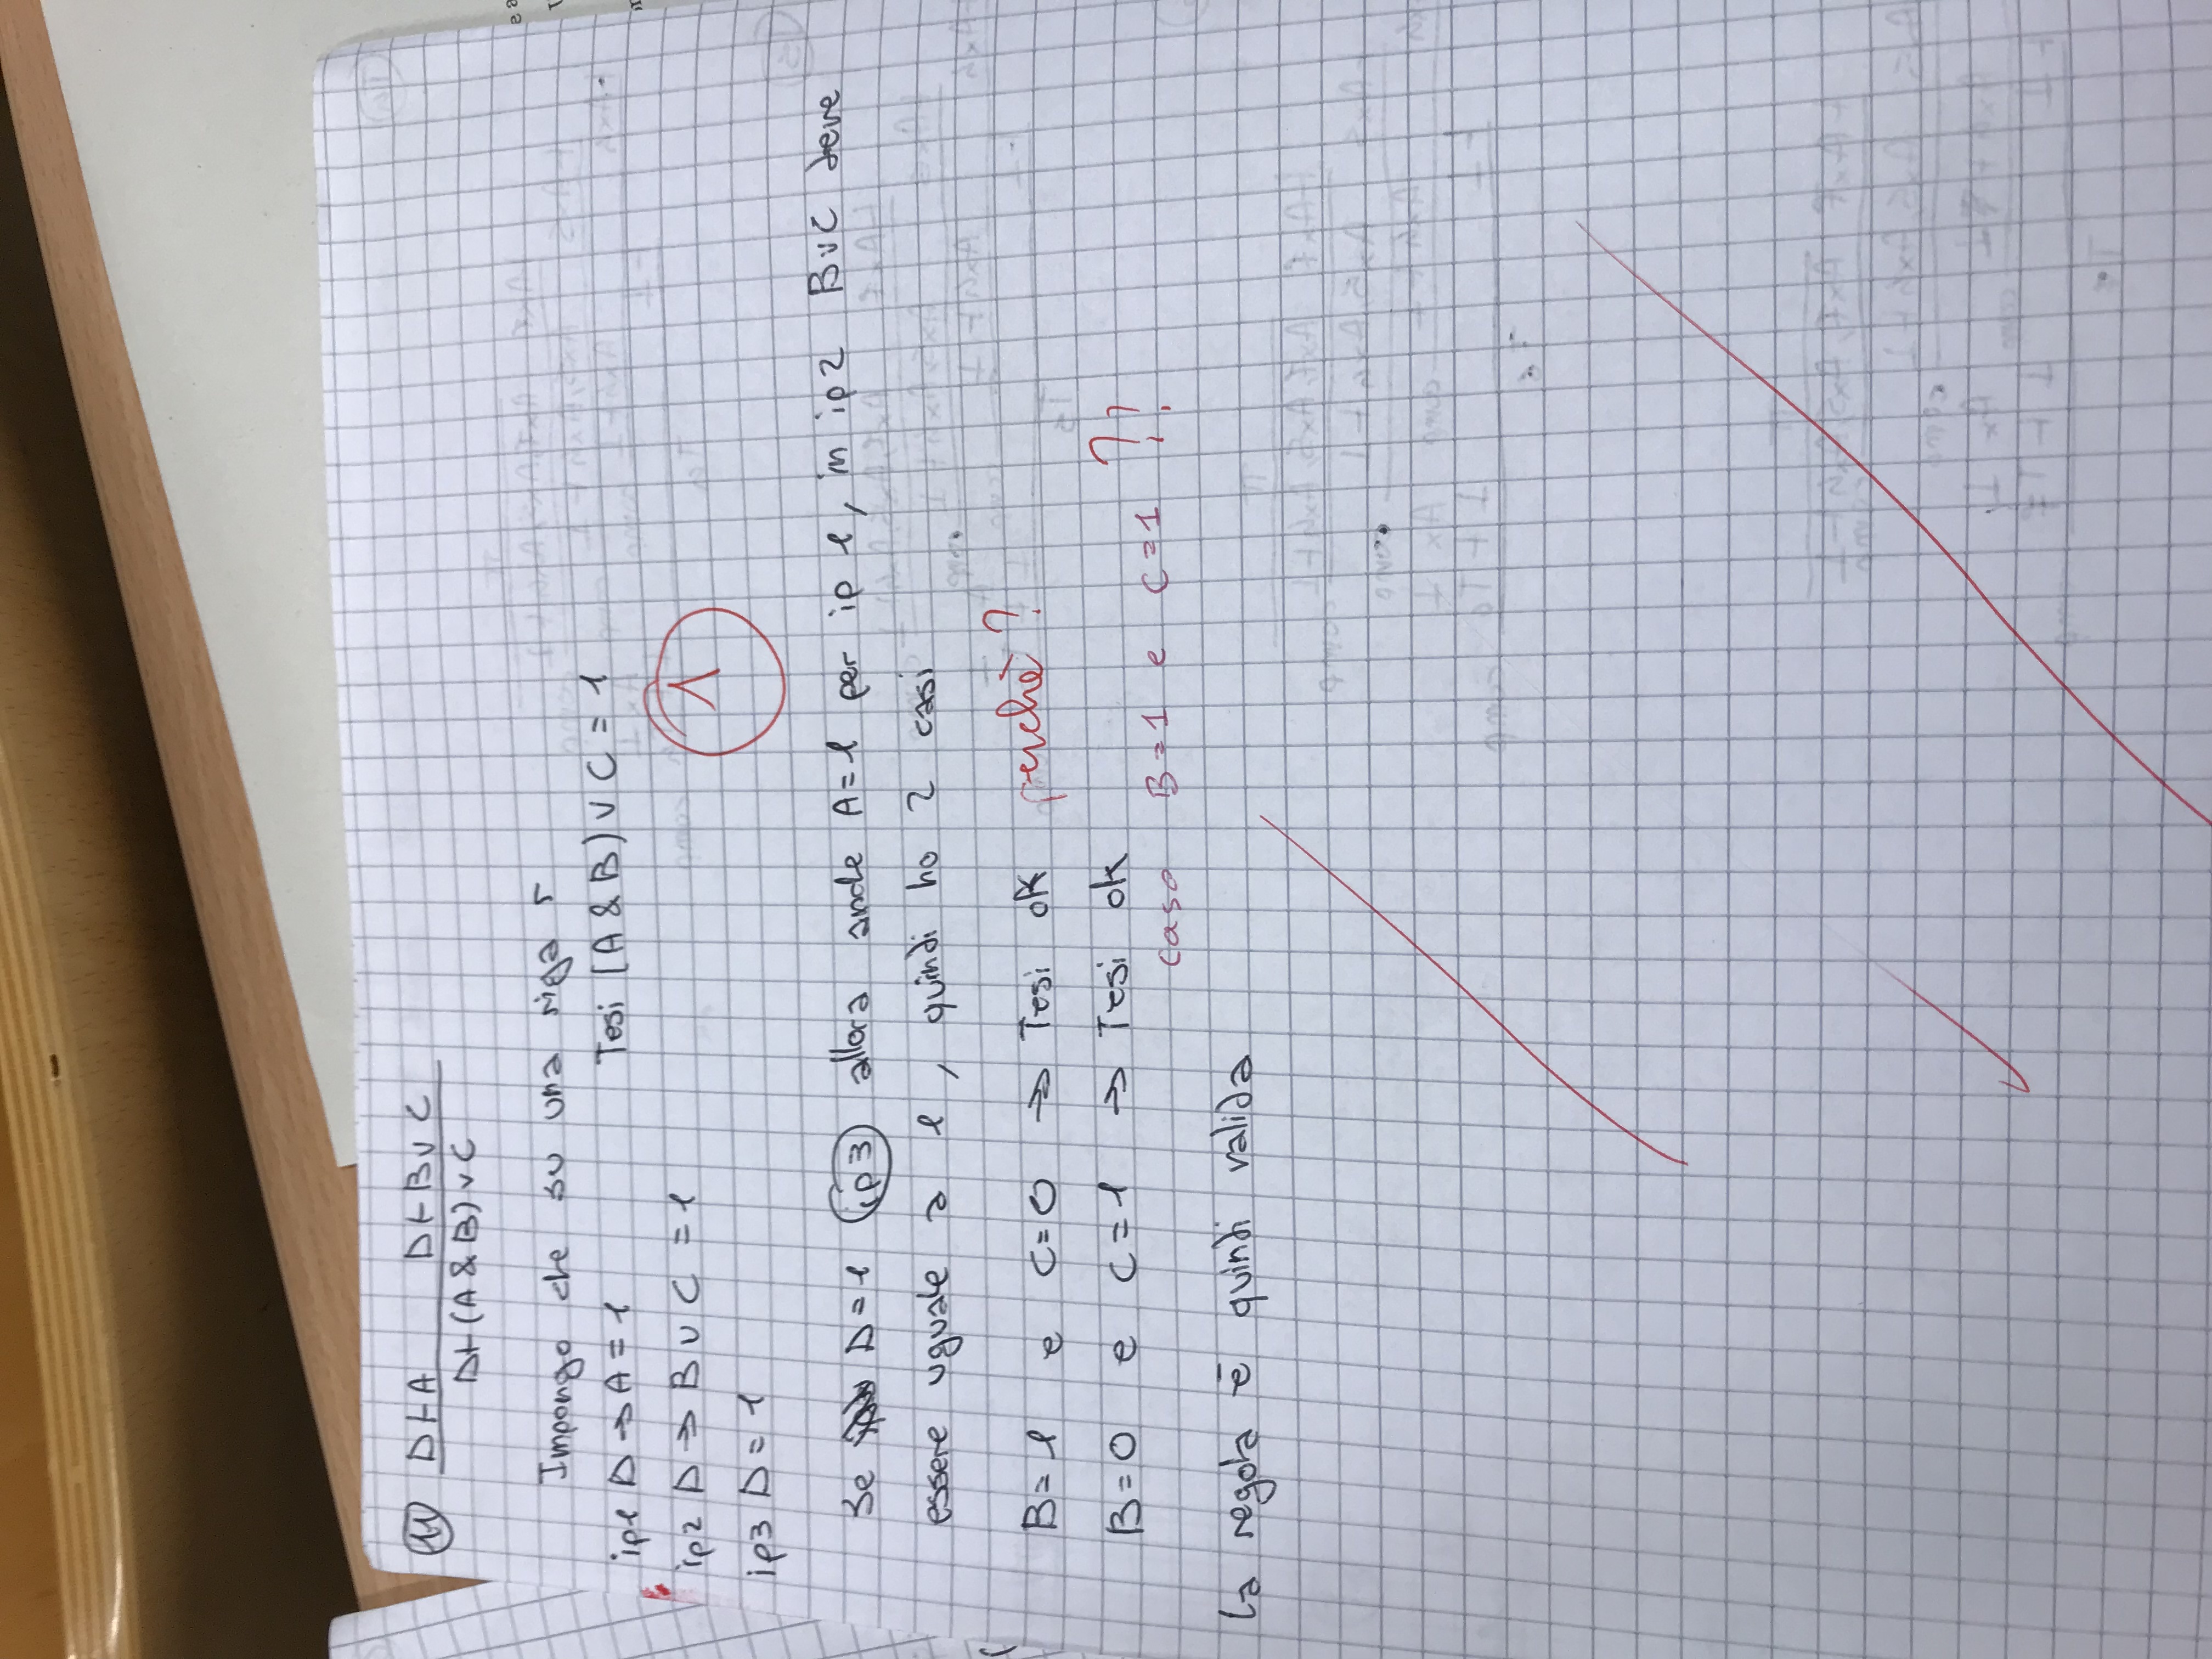 11 D⊢A D⊢B∨C
D⊢(A & B)∨C
Impongo che su una riga r
ip1 D → A = 1 Tesi (A & B) ∨ C = 1
1
ip2 D → B ∨ C = 1
ip3 D = 1
Se D=1 ip3 allora anche A=1 per ip 1, in ip2 B∨C deve
essere uguale a 1, quindi ho 2 casi
B=1 e C=0 → Tesi ok perchè?
B=0 e C=1 → Tesi ok
caso B=1 e C=1 ??
la regola è quindi valida